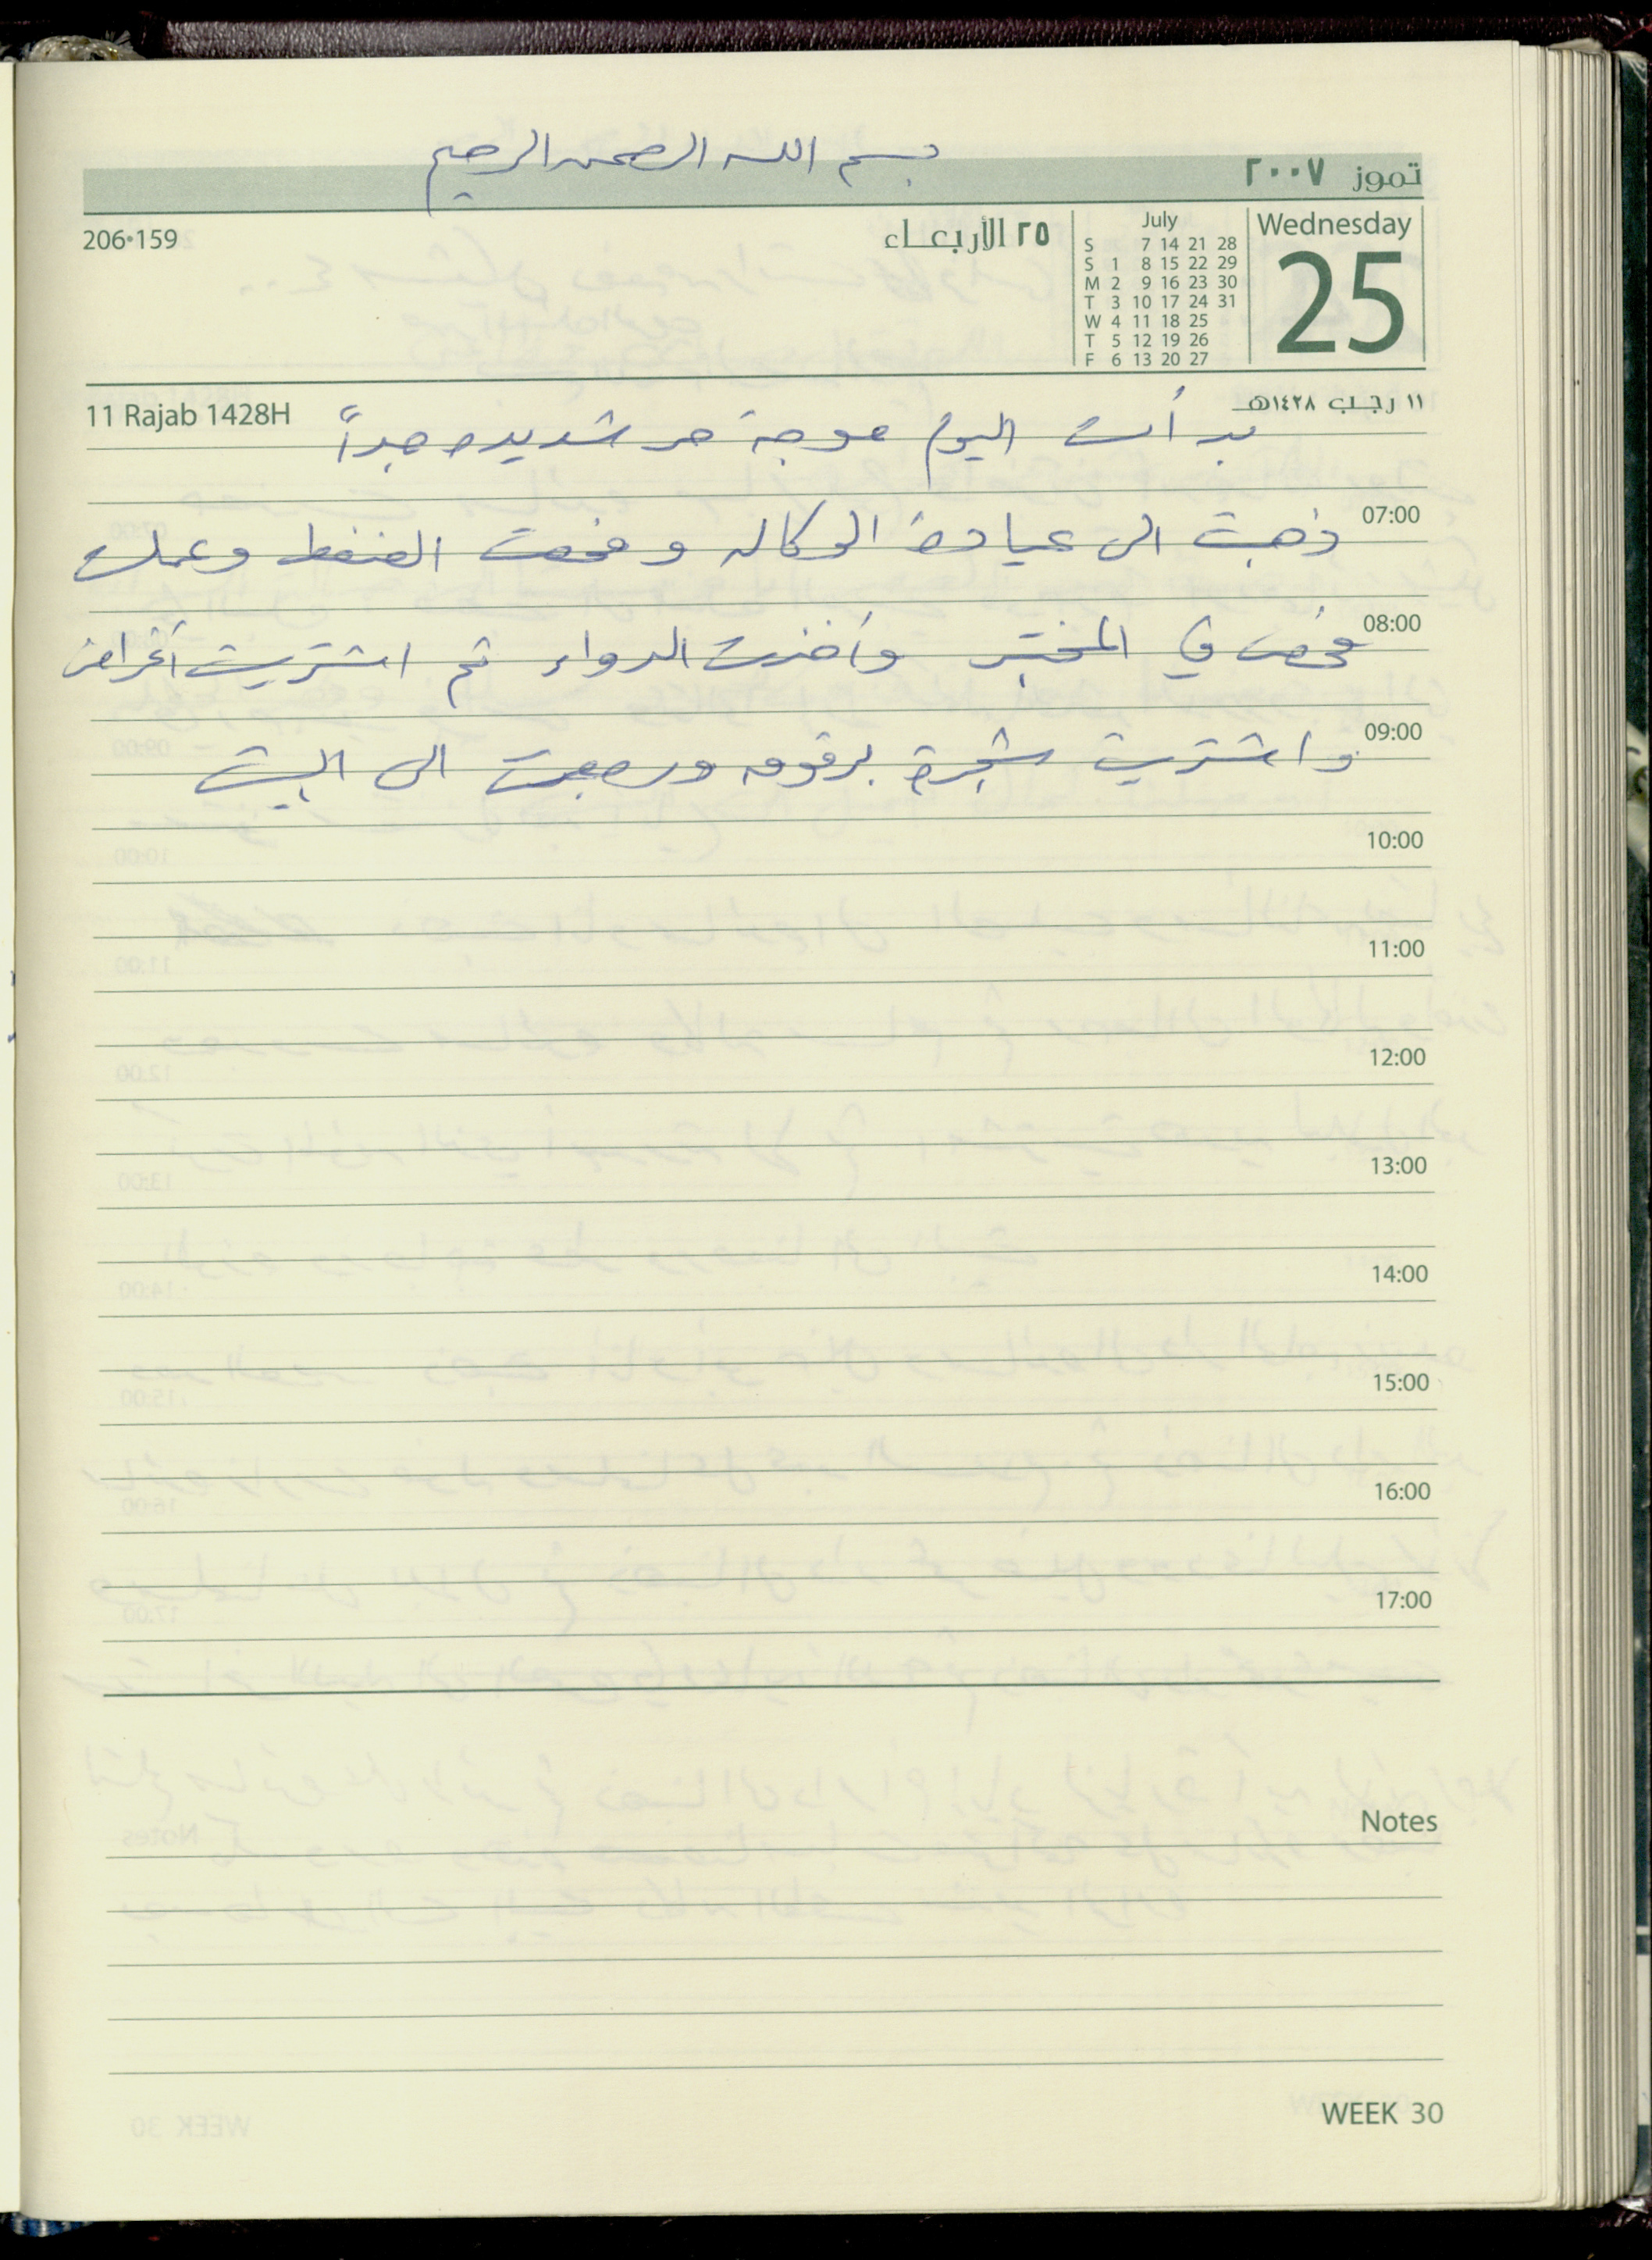 بسم الله الرحمن الرحيم
تموز ٢٠٠٧
206•159
٢٥ الأربعاء
July
S 7 14 21 28
S 1 8 15 22 29
M 2 9 16 23 30
T 3 10 17 24 31
W 4 11 18 25
T 5 12 19 26
F 6 13 20 27
Wednesday
25
11 Rajab 1428H
١١ رجب ١٤٢٨هـ
بدأت اليوم موجة حر شديدة جداً
07:00
ذهبت الى عيادة الوكاله وفحصت الضغط وعملت
08:00
فحص في المختبر وأخذت الدواء ثم اشتريت أغراض
09:00
واشتريت شجرة برقوق ورجعت الى البيت
10:00
11:00
12:00
13:00
14:00
15:00
16:00
17:00
Notes
WEEK 30